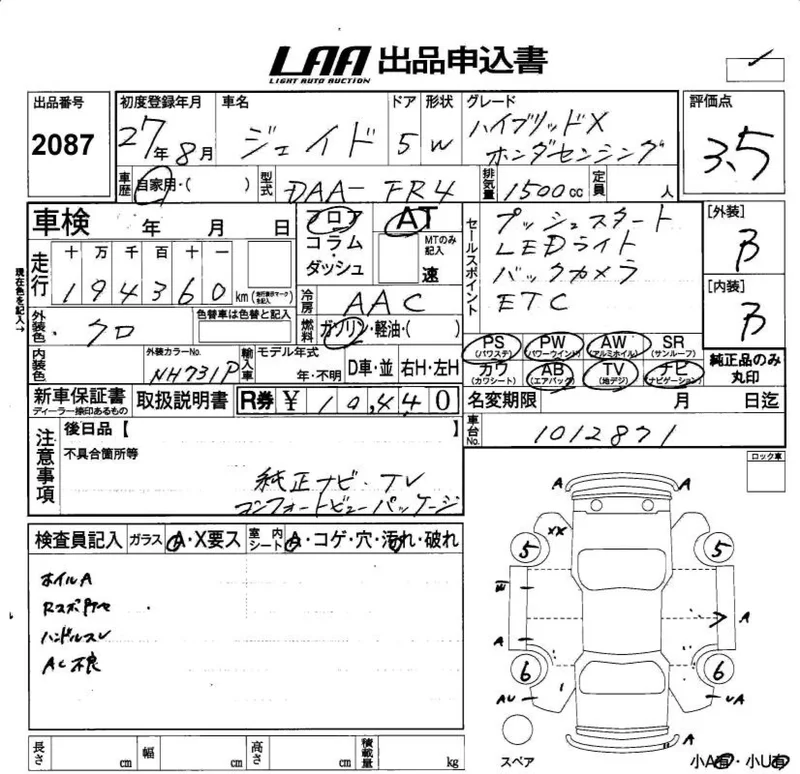 LAA 出品申込書
LIGHT AUTO AUCTION
出品番号
2087
初度登録年月
27年 8月
車名
ジェイド
ドア
5
形状
W
グレード
ハイブリッドX
ホンダセンシング
評価点
3.5
車歴
自家用・( )
型式
DAA-FR4
排気量
1500cc
定員
人
車検 年 月 日
フロア
コラム・
ダッシュ
AT
MTのみ
記入
速
セールスポイント
プッシュスタート
LEDライト
バックカメラ
ETC
[外装]
B
[内装]
B
現在色を記入→
走行
十 万 千 百 十 一
194360 km
(走行表示マーク)
を記入
冷房
AAC
外装色
・クロ
色替車は色替と記入
燃料
ガソリン・軽油・( )
PS
(パワステ)
PW
(パワーウインド)
AW
(アルミホイル)
SR
(サンルーフ)
カワ
(カワシート)
AB
(エアバック)
TV
(地デジ)
ナビ
(ナビゲーション)
純正品のみ
丸印
内装色
外装カラーNo.
NH731P
輸入車
モデル年式
年・不明
D車・並
右H・左H
新車保証書
ディーラー捺印あるもの
取扱説明書
R券 ¥ 10,440
名変期限 月 日迄
車台No.
1012871
注意事項
後日品【 】
不具合箇所等
純正ナビ・TV
コンフォートビューパッケージ
ロック車
検査員記入
ガラス
A・X要ス
室内
シート
A・コゲ・穴・汚れ・破れ
ホイルA
ハンドルスレ
AC不良
A
A
XX
5
5
W
A
A
6
6
AU
UA
A
スペア
小A有・小U有
長さ cm
幅 cm
高さ cm
積載量 kg